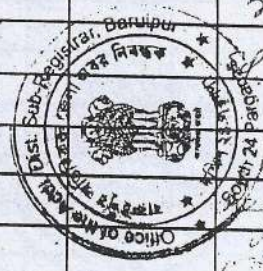 Office of the Addl. Dist. Sub-Registrar, Baruipur
South 24 Parganas
অবর নিবন্ধক
বারুইপুর